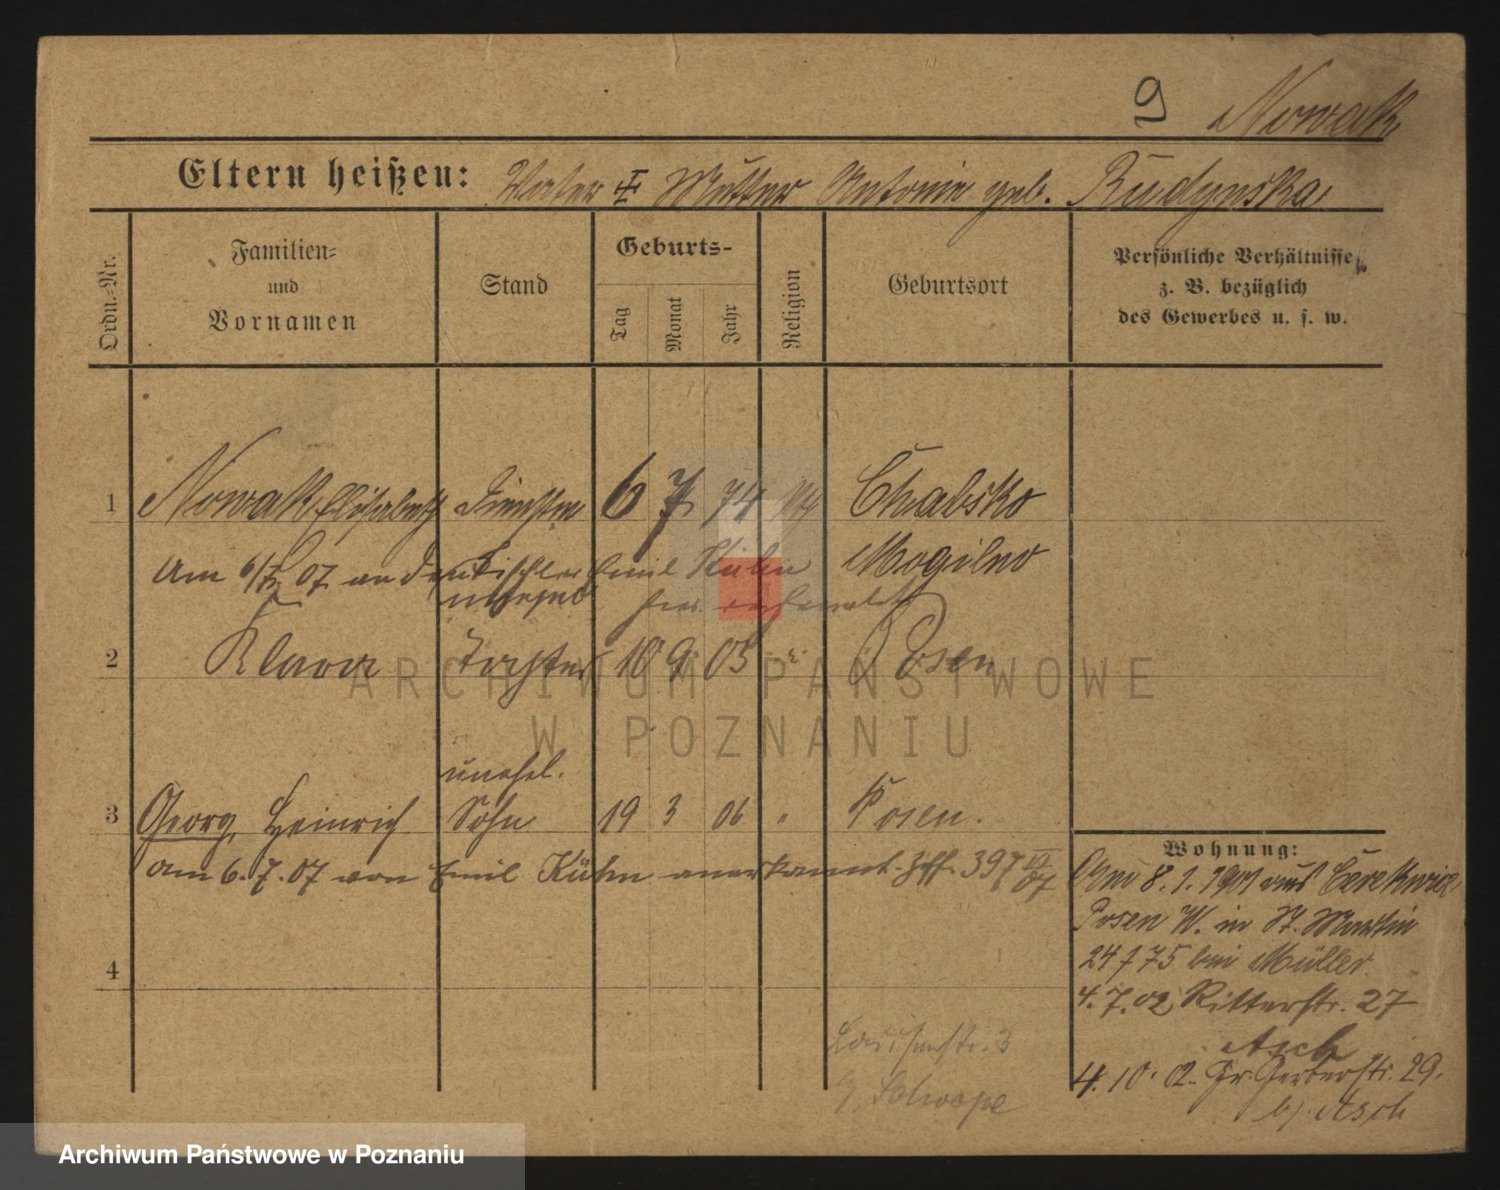 9 Nowak
Eltern heißen: Vater † Mutter Antonie geb. Budynska
Ordn.-Nr.
Familien- und Vornamen
Stand
Geburts-
Tag
Monat
Jahr
Religion
Geburtsort
Persönliche Verhältnisse
z. B. bezüglich
des Gewerbes u. s. w.
1 Nowak Elisabeth 6 7 74 Chabsko
Am 07 an Tischler Emil Kühn Mogilno
2 Klara Tochter 10 9 05 Posen
unehel.
3 Georg Heinrich Sohn 19 3 06 " Posen.
am 6.7.07 von Emil Kühn anerkannt. 397 VI 07
4
Wohnung:
8.1.1901 aus
Posen W. in St. Martin
24 75 bei Müller
4.7.02 Ritterstr. 27
Asch
4.10.02. Gr. Gerberstr. 29.
b/ Asch
ARCHIWUM PAŃSTWOWE
W POZNANIU
Archiwum Państwowe w Poznaniu